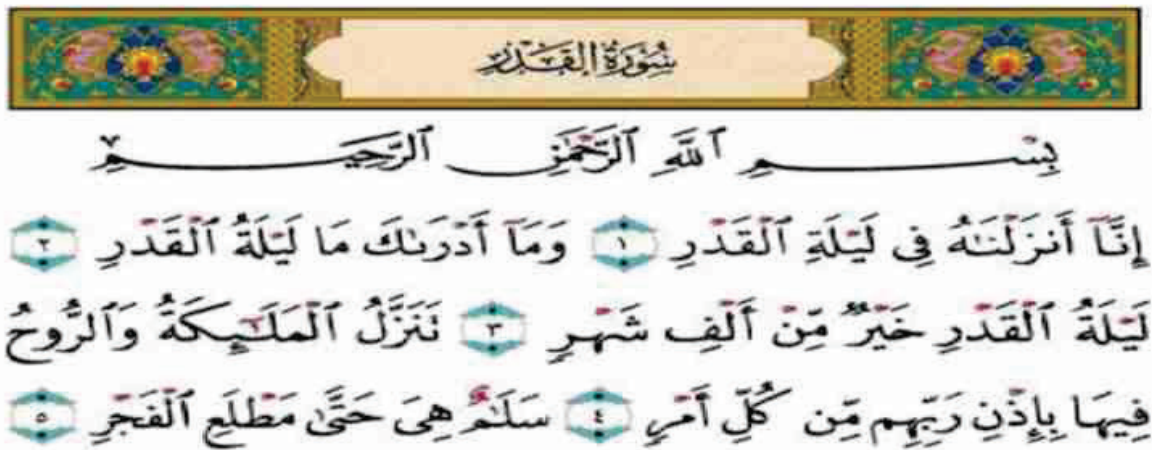 سُورَةُ الْقَدْرِ
بِسْمِ ٱللَّهِ ٱلرَّحْمَٰنِ ٱلرَّحِيمِ
إِنَّآ أَنزَلْنَٰهُ فِى لَيْلَةِ ٱلْقَدْرِ ١ وَمَآ أَدْرَىٰكَ مَا لَيْلَةُ ٱلْقَدْرِ ٢
لَيْلَةُ ٱلْقَدْرِ خَيْرٌ مِّنْ أَلْفِ شَهْرٍ ٣ تَنَزَّلُ ٱلْمَلَٰٓئِكَةُ وَٱلرُّوحُ
فِيهَا بِإِذْنِ رَبِّهِم مِّن كُلِّ أَمْرٍ ٤ سَلَٰمٌ هِىَ حَتَّىٰ مَطْلَعِ ٱلْفَجْرِ ٥